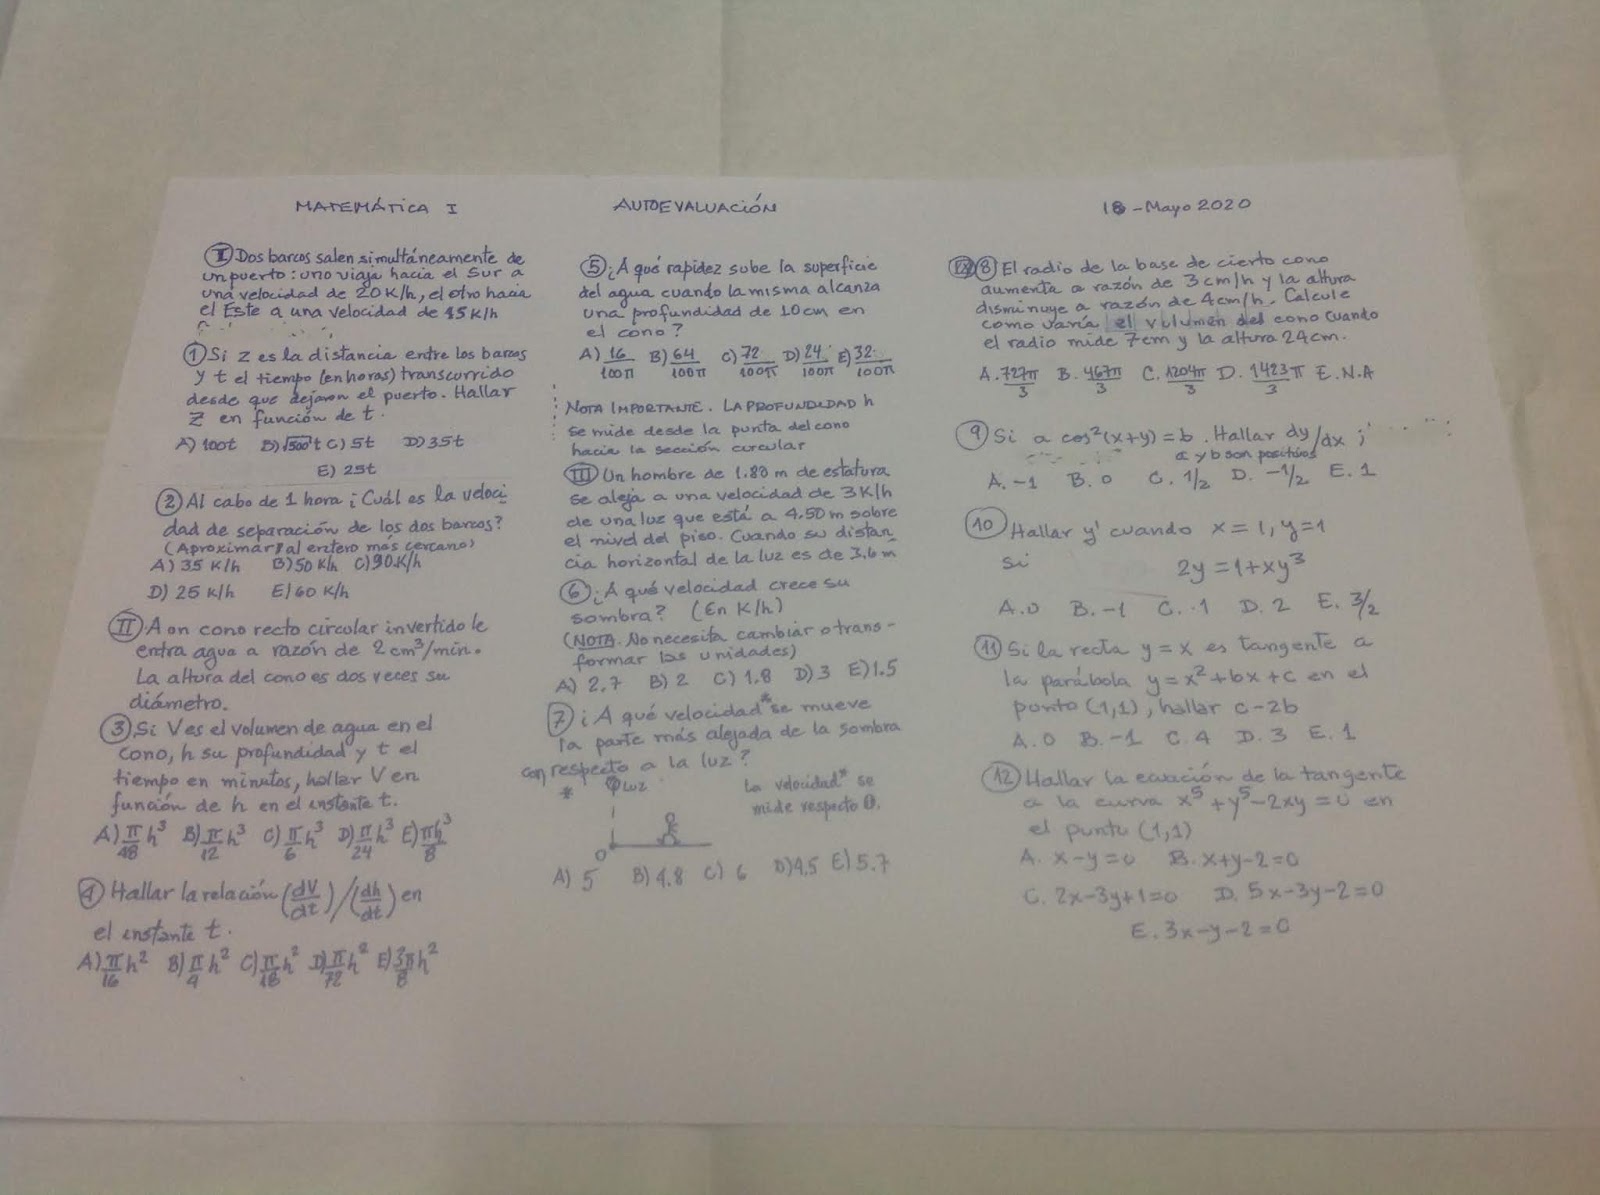 MATEMÁTICA I
AUTOEVALUACIÓN
18 - Mayo 2020
I Dos barcos salen simultáneamente de
un puerto: uno viaja hacia el Sur a
una velocidad de 20 K/h, el otro hacia
el Este a una velocidad de 15 K/h
1 Si z es la distancia entre los barcos
y t el tiempo (en horas) transcurrido
desde que dejaron el puerto. Hallar
z en función de t.
A) 100t B) √500 t C) 5t D) 35t
E) 25t
2 Al cabo de 1 hora ¿Cuál es la veloci-
dad de separación de los dos barcos?
(Aproximar al entero más cercano)
A) 35 K/h B) 50 K/h C) 30 K/h
D) 25 K/h E) 60 K/h
II A on cono recto circular invertido le
entra agua a razón de 2 cm³/min.
La altura del cono es dos veces su
diámetro.
3 Si V es el volumen de agua en el
cono, h su profundidad y t el
tiempo en minutos, hallar V en
función de h en el instante t.
A) π/48 h³ B) π/12 h³ C) π/6 h³ D) π/24 h³ E) πh³/8
4 Hallar la relación (dV/dt)/(dh/dt) en
el instante t.
A) π/16 h² B) π/4 h² C) π/18 h² D) π/72 h² E) 3π/8 h²
5 ¿A qué rapidez sube la superficie
del agua cuando la misma alcanza
una profundidad de 10 cm en
el cono?
A) 16/100π B) 64/100π C) 72/100π D) 24/100π E) 32/100π
NOTA IMPORTANTE. LA PROFUNDIDAD h
se mide desde la punta del cono
hacia la sección circular
III Un hombre de 1.80 m de estatura
se aleja a una velocidad de 3 K/h
de una luz que está a 4.50 m sobre
el nivel del piso. Cuando su distan-
cia horizontal de la luz es de 3,6 m
6 ¿A qué velocidad crece su
sombra? (En K/h)
(NOTA. No necesita cambiar o trans-
formar las unidades)
A) 2.7 B) 2 C) 1.8 D) 3 E) 1.5
7 ¿A qué velocidad* se mueve
la parte más alejada de la sombra
con respecto a la luz?
* LUZ
La velocidad* se
mide respecto 0.
0
A) 5 B) 4.8 C) 6 D) 4.5 E) 5.7
8 El radio de la base de cierto cono
aumenta a razón de 3 cm/h y la altura
disminuye a razón de 4 cm/h. Calcule
como varía el volumen del cono cuando
el radio mide 7 cm y la altura 24 cm.
A. 727π/3 B. 467π/3 C. 1204π/3 D. 1423/3 π E. N.A
9 Si a cos²(x+y) = b. Hallar dy/dx ;
a y b son positivos
A. -1 B. 0 C. 1/2 D. -1/2 E. 1
10 Hallar y' cuando x = 1, y = 1
si 2y = 1 + xy³
A. 0 B. -1 C. 1 D. 2 E. 3/2
11 Si la recta y = x es tangente a
la parábola y = x² + bx + c en el
punto (1,1), hallar c - 2b
A. 0 B. -1 C. 4 D. 3 E. 1
12 Hallar la ecuación de la tangente
a la curva x⁵ + y⁵ - 2xy = 0 en
el punto (1,1)
A. x - y = 0 B. x + y - 2 = 0
C. 2x - 3y + 1 = 0 D. 5x - 3y - 2 = 0
E. 3x - y - 2 = 0